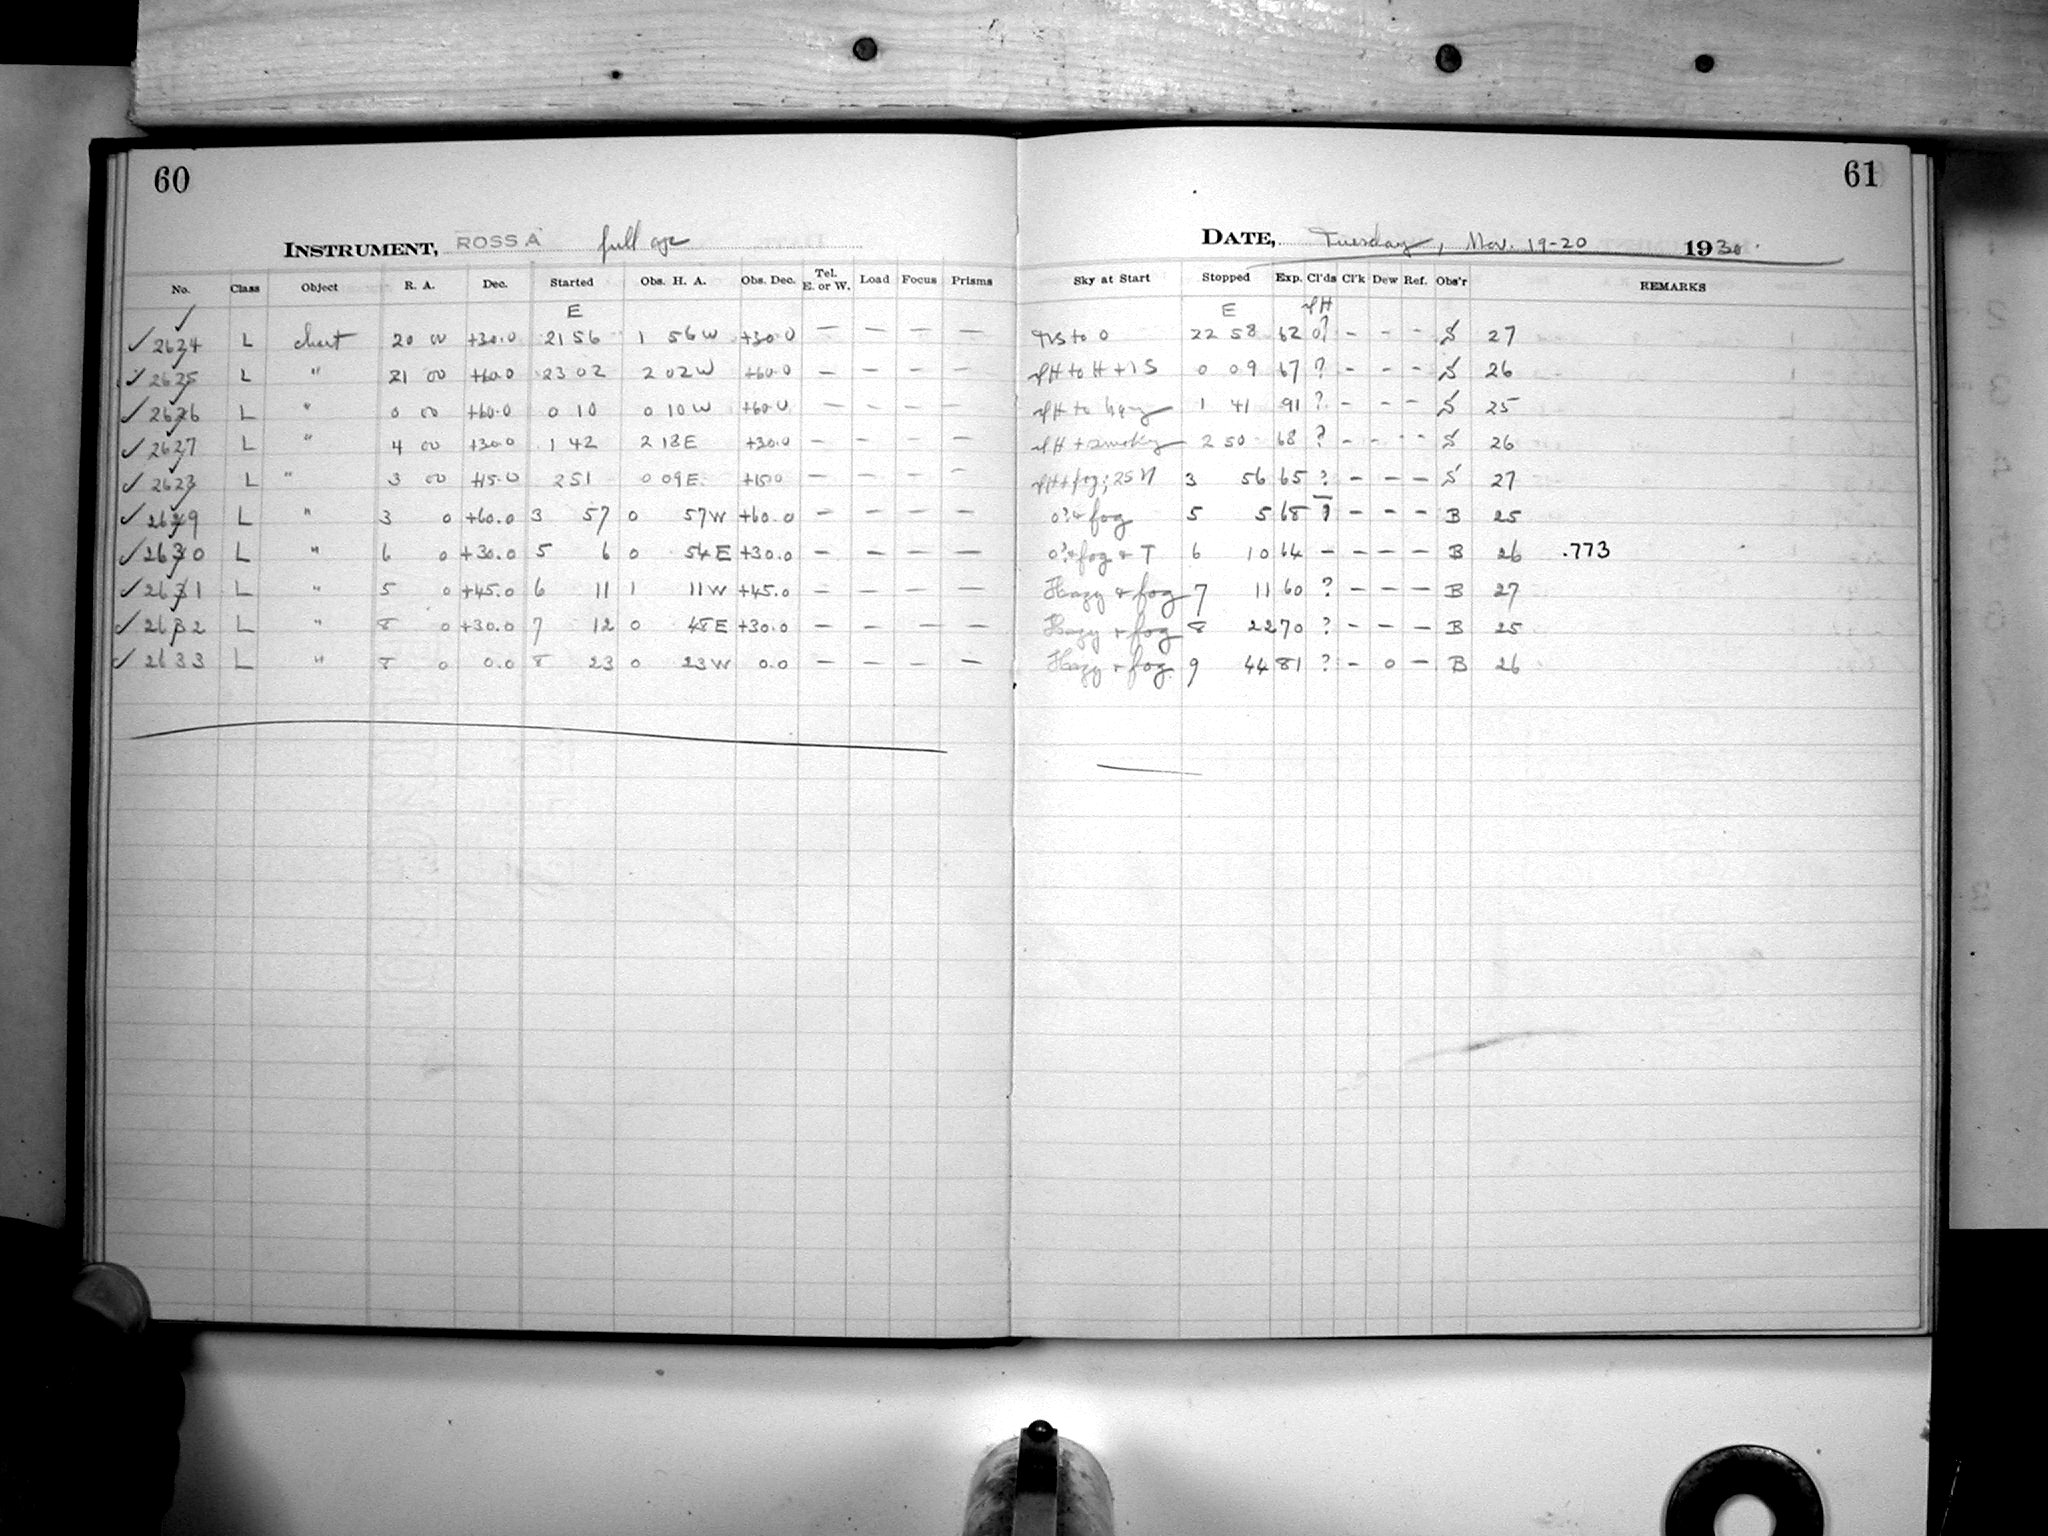 60
INSTRUMENT, ROSS A full age
No. Class Object R. A. Dec. Started Obs. H. A. Obs. Dec. Tel. E. or W. Load Focus Prisms
E
✓ 2624 L chart 20 00 +30.0 21 56 1 56 W +30.0 — — — —
✓ 2625 L " 21 00 +60.0 23 02 2 02 W +60.0 — — — —
✓ 2626 L " 0 00 +60.0 0 10 0 10 W +60.0 — — — —
✓ 2627 L " 4 00 +30.0 1 42 2 18 E +30.0 — — — —
✓ 2628 L " 3 00 +15.0 2 51 0 09 E +15.0 — — — —
✓ 2629 L " 3 0 +60.0 3 57 0 57 W +60.0 — — — —
✓ 2630 L " 6 0 +30.0 5 6 0 54 E +30.0 — — — —
✓ 2631 L " 5 0 +45.0 6 11 1 11 W +45.0 — — — —
✓ 2632 L " 8 0 +30.0 7 12 0 48 E +30.0 — — — —
✓ 2633 L " 8 0 0.0 8 23 0 23 W 0.0 — — — —
61
DATE, Tuesday, Nov. 19-20 1930.
Sky at Start Stopped Exp. Cl'ds Cl'k Dew Ref. Obs'r REMARKS
E
to 0 22 58 62 0? - - - S 27
to H + 1 S 0 09 67 ? - - - S 26
to hazy 1 41 91 ? - - - S 25
+ smoky 2 50 68 ? - - - S 26
+ fog; 25 3 56 65 ? - - - S 27
0? + fog 5 5 68 ? - - - B 25
0? + fog + T 6 10 64 - - - - B 26 .773
Hazy + fog 7 11 60 ? - - - B 27
Hazy + fog 8 22 70 ? - - - B 25
Hazy + fog 9 44 81 ? - 0 - B 26